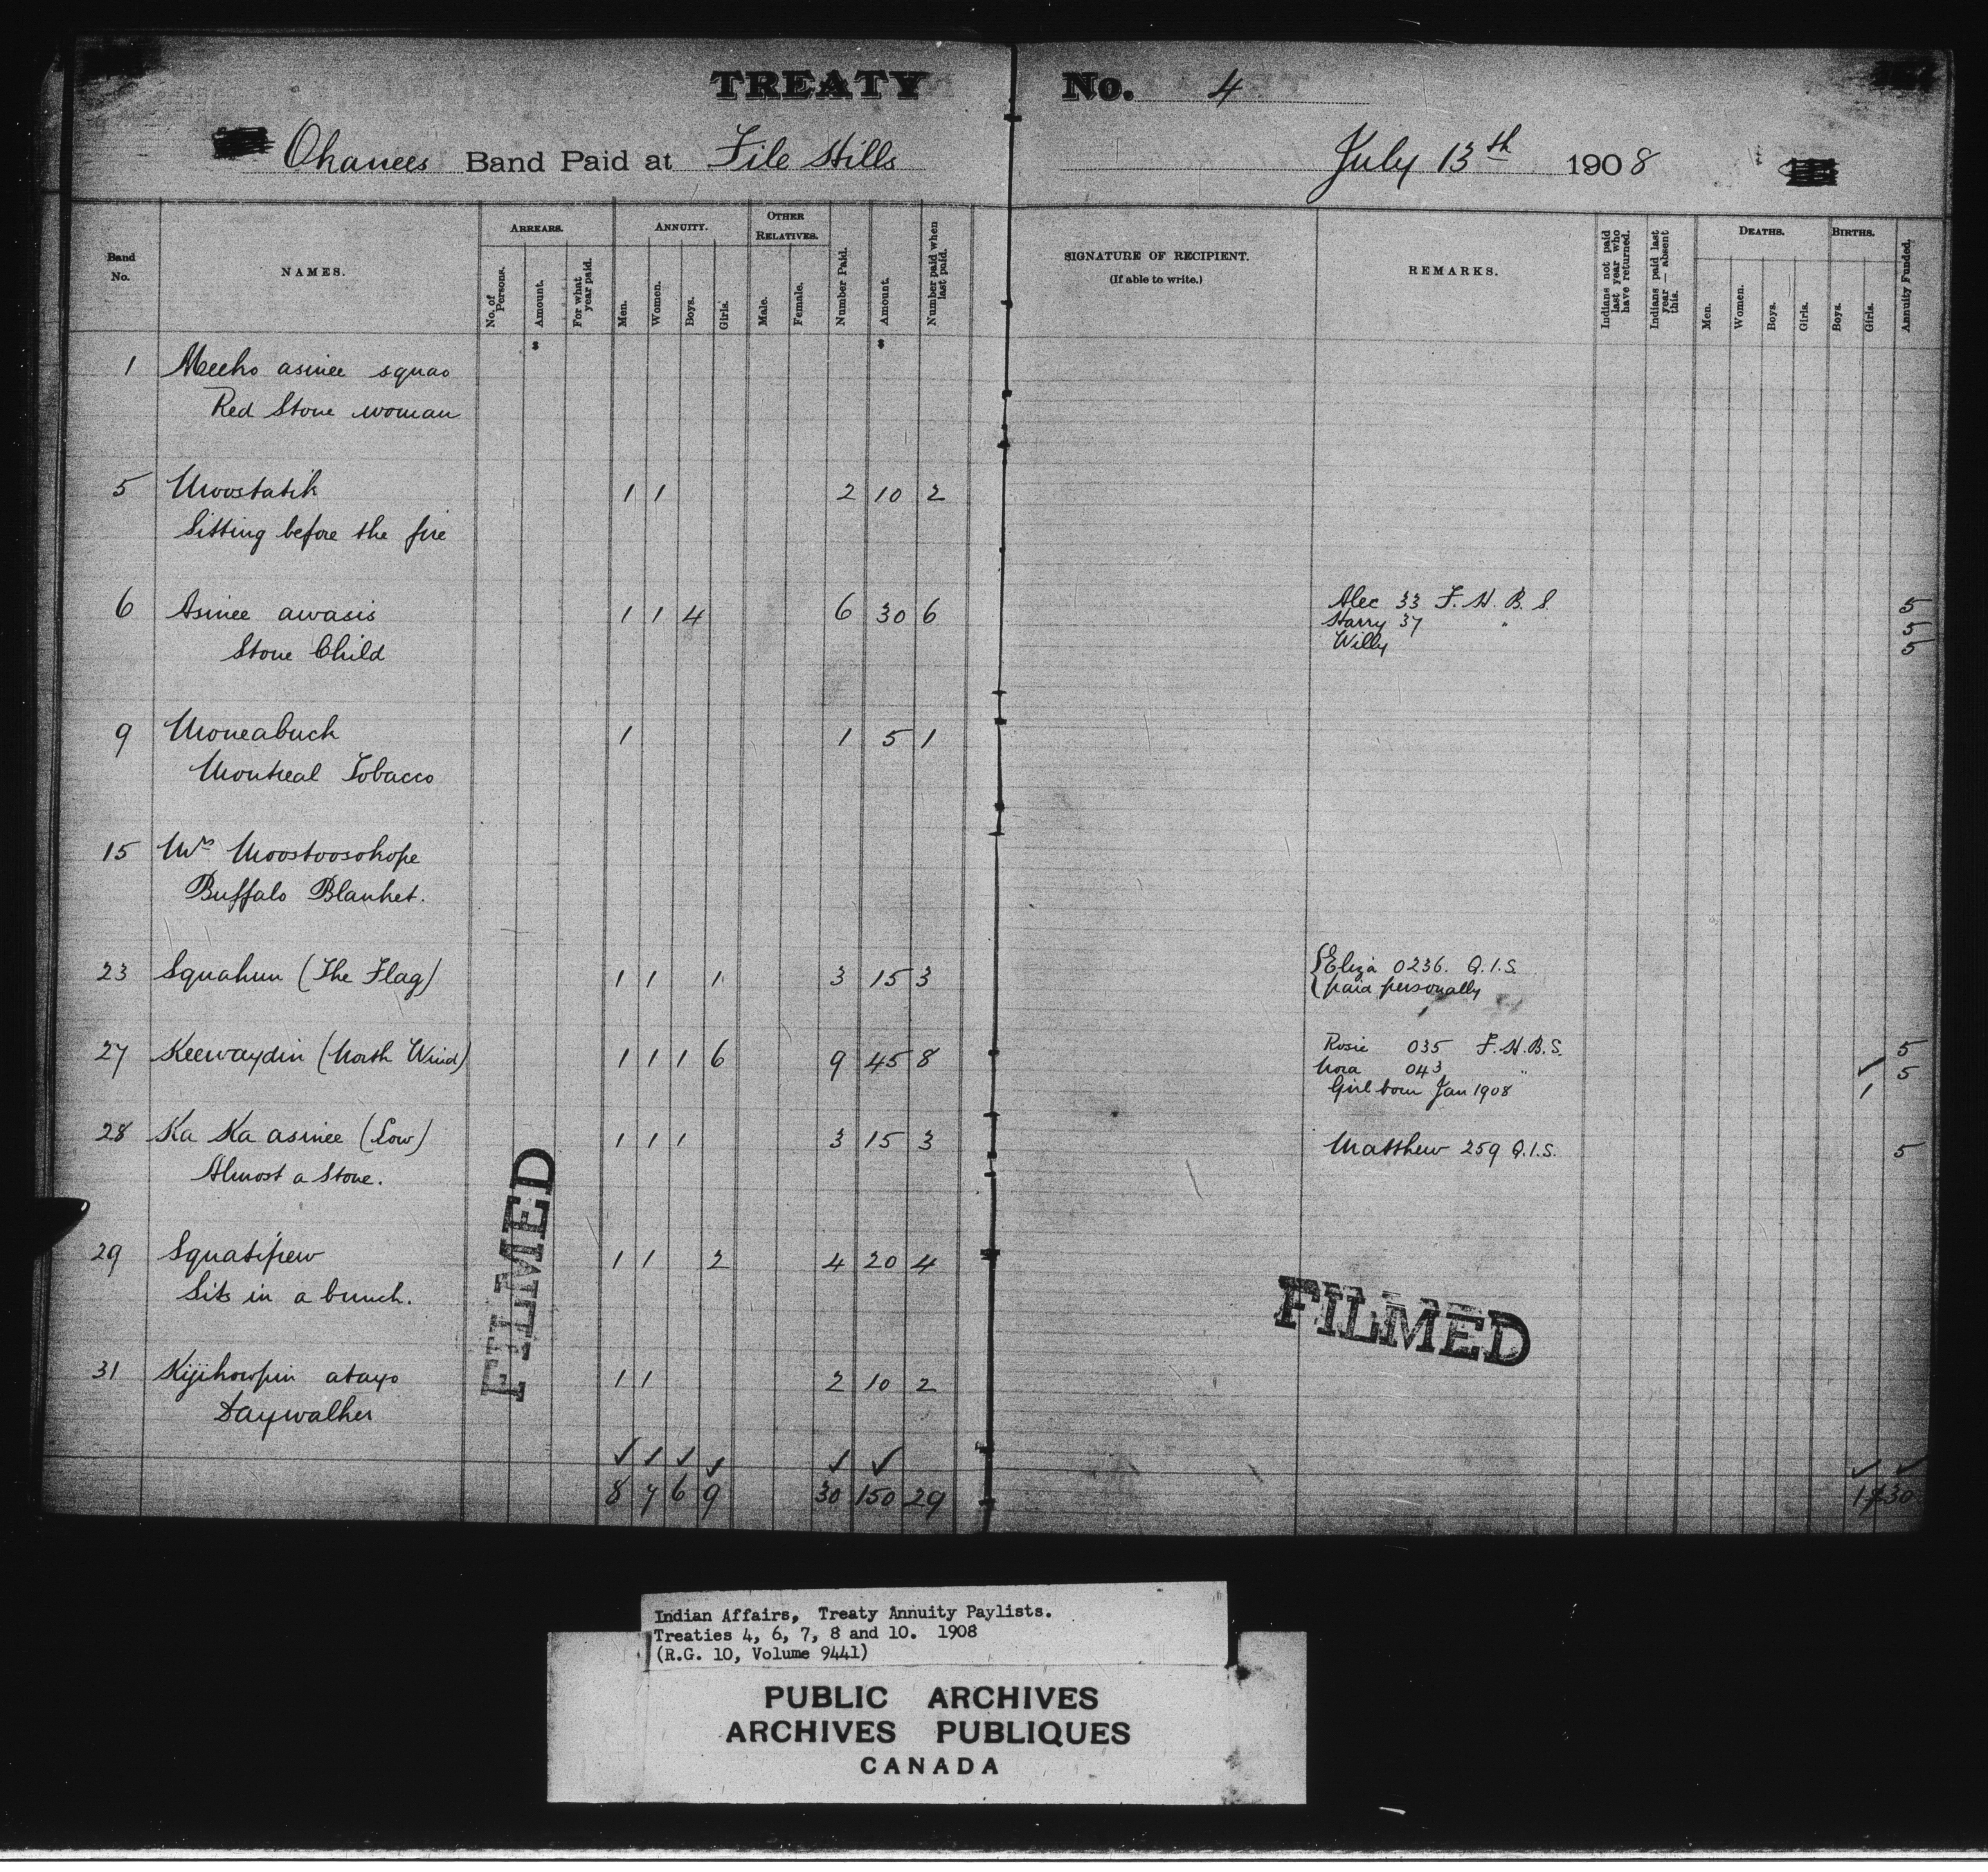 TREATY No. 4
Okanees Band Paid at File Hills July 13th 1908
Band No. NAMES. ARREARS. No. of Persons. Amount. For what year paid. ANNUITY. Men. Women. Boys. Girls. OTHER RELATIVES. Male. Female. Number Paid. Amount. Number paid when last paid. SIGNATURE OF RECIPIENT. (If able to write.) REMARKS. Indians not paid last year who have returned. Indians paid last year — absent this. DEATHS. Men. Women. Boys. Girls. BIRTHS. Boys. Girls. Annuity Funded.
$ $
1 Meeko asinee squao
Red Stone woman
5 Moostatik 1 1 2 10 2
Sitting before the fire
6 Asinee awasis 1 1 4 6 30 6 Alec 33 F. H. B. S. 5
Stone Child Harry 37 " 5
Willy 5
9 Moneabuck 1 1 5 1
Montreal Tobacco
15 Mrs Moostoosokope
Buffalo Blanket.
23 Squakun (The Flag) 1 1 1 3 15 3 Eliza 0236. Q.I.S.
paid personally
27 Keewaydin (North Wind) 1 1 1 6 9 45 8 Rosie 035 F.H.B.S. 5
Nora 043 " ✓ 5
Girl born Jan 1908 1
28 Ka Ka asinee (Low) 1 1 1 3 15 3 Matthew 259 Q.I.S. 5
Almost a Stone.
29 Squatipew 1 1 2 4 20 4
Sits in a bunch.
31 Kijikowpin atayo 1 1 2 10 2
Daywalker
✓ ✓ ✓ ✓ ✓ ✓ ✓ ✓
8 7 6 9 30 150 29 1 30
FILMED
FILMED
Indian Affairs, Treaty Annuity Paylists.
Treaties 4, 6, 7, 8 and 10. 1908
(R.G. 10, Volume 9441)
PUBLIC ARCHIVES
ARCHIVES PUBLIQUES
CANADA